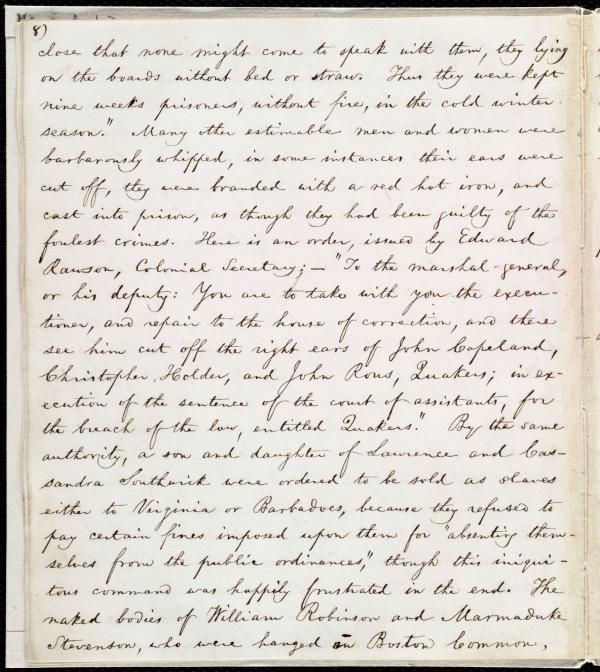 8)
close that none might come to speak with them, they lying
on the boards without bed or straw. Thus they were kept
nine weeks prisoners, without fire, in the cold winter
season." Many other estimable men and women were
barbarously whipped, in some instances their ears were
cut off, they were branded with a red hot iron, and
cast into prison, as though they had been guilty of the
foulest crimes. Here is an order, issued by Edward
Rawson, Colonial Secretary;—"To the marshal-general,
or his deputy: You are to take with you the execu-
tioner, and repair to the house of correction, and there
see him cut off the right ears of John Copeland,
Christopher Holder, and John Rous, Quakers; in ex-
ecution of the sentence of the court of assistants, for
the breach of the law, entitled Quakers." By the same
authority, a son and daughter of Lawrence and Cas-
sandra Southwik were ordered to be sold as slaves
either to Virginia or Barbadoes, because they refused to
pay certain fines imposed upon them for "absenting them-
selves from the public ordinances," though this iniqui-
tous command was happily frustrated in the end. The
naked bodies of William Robinson and Marmaduke
Stevenson, who were hanged on Boston Common,